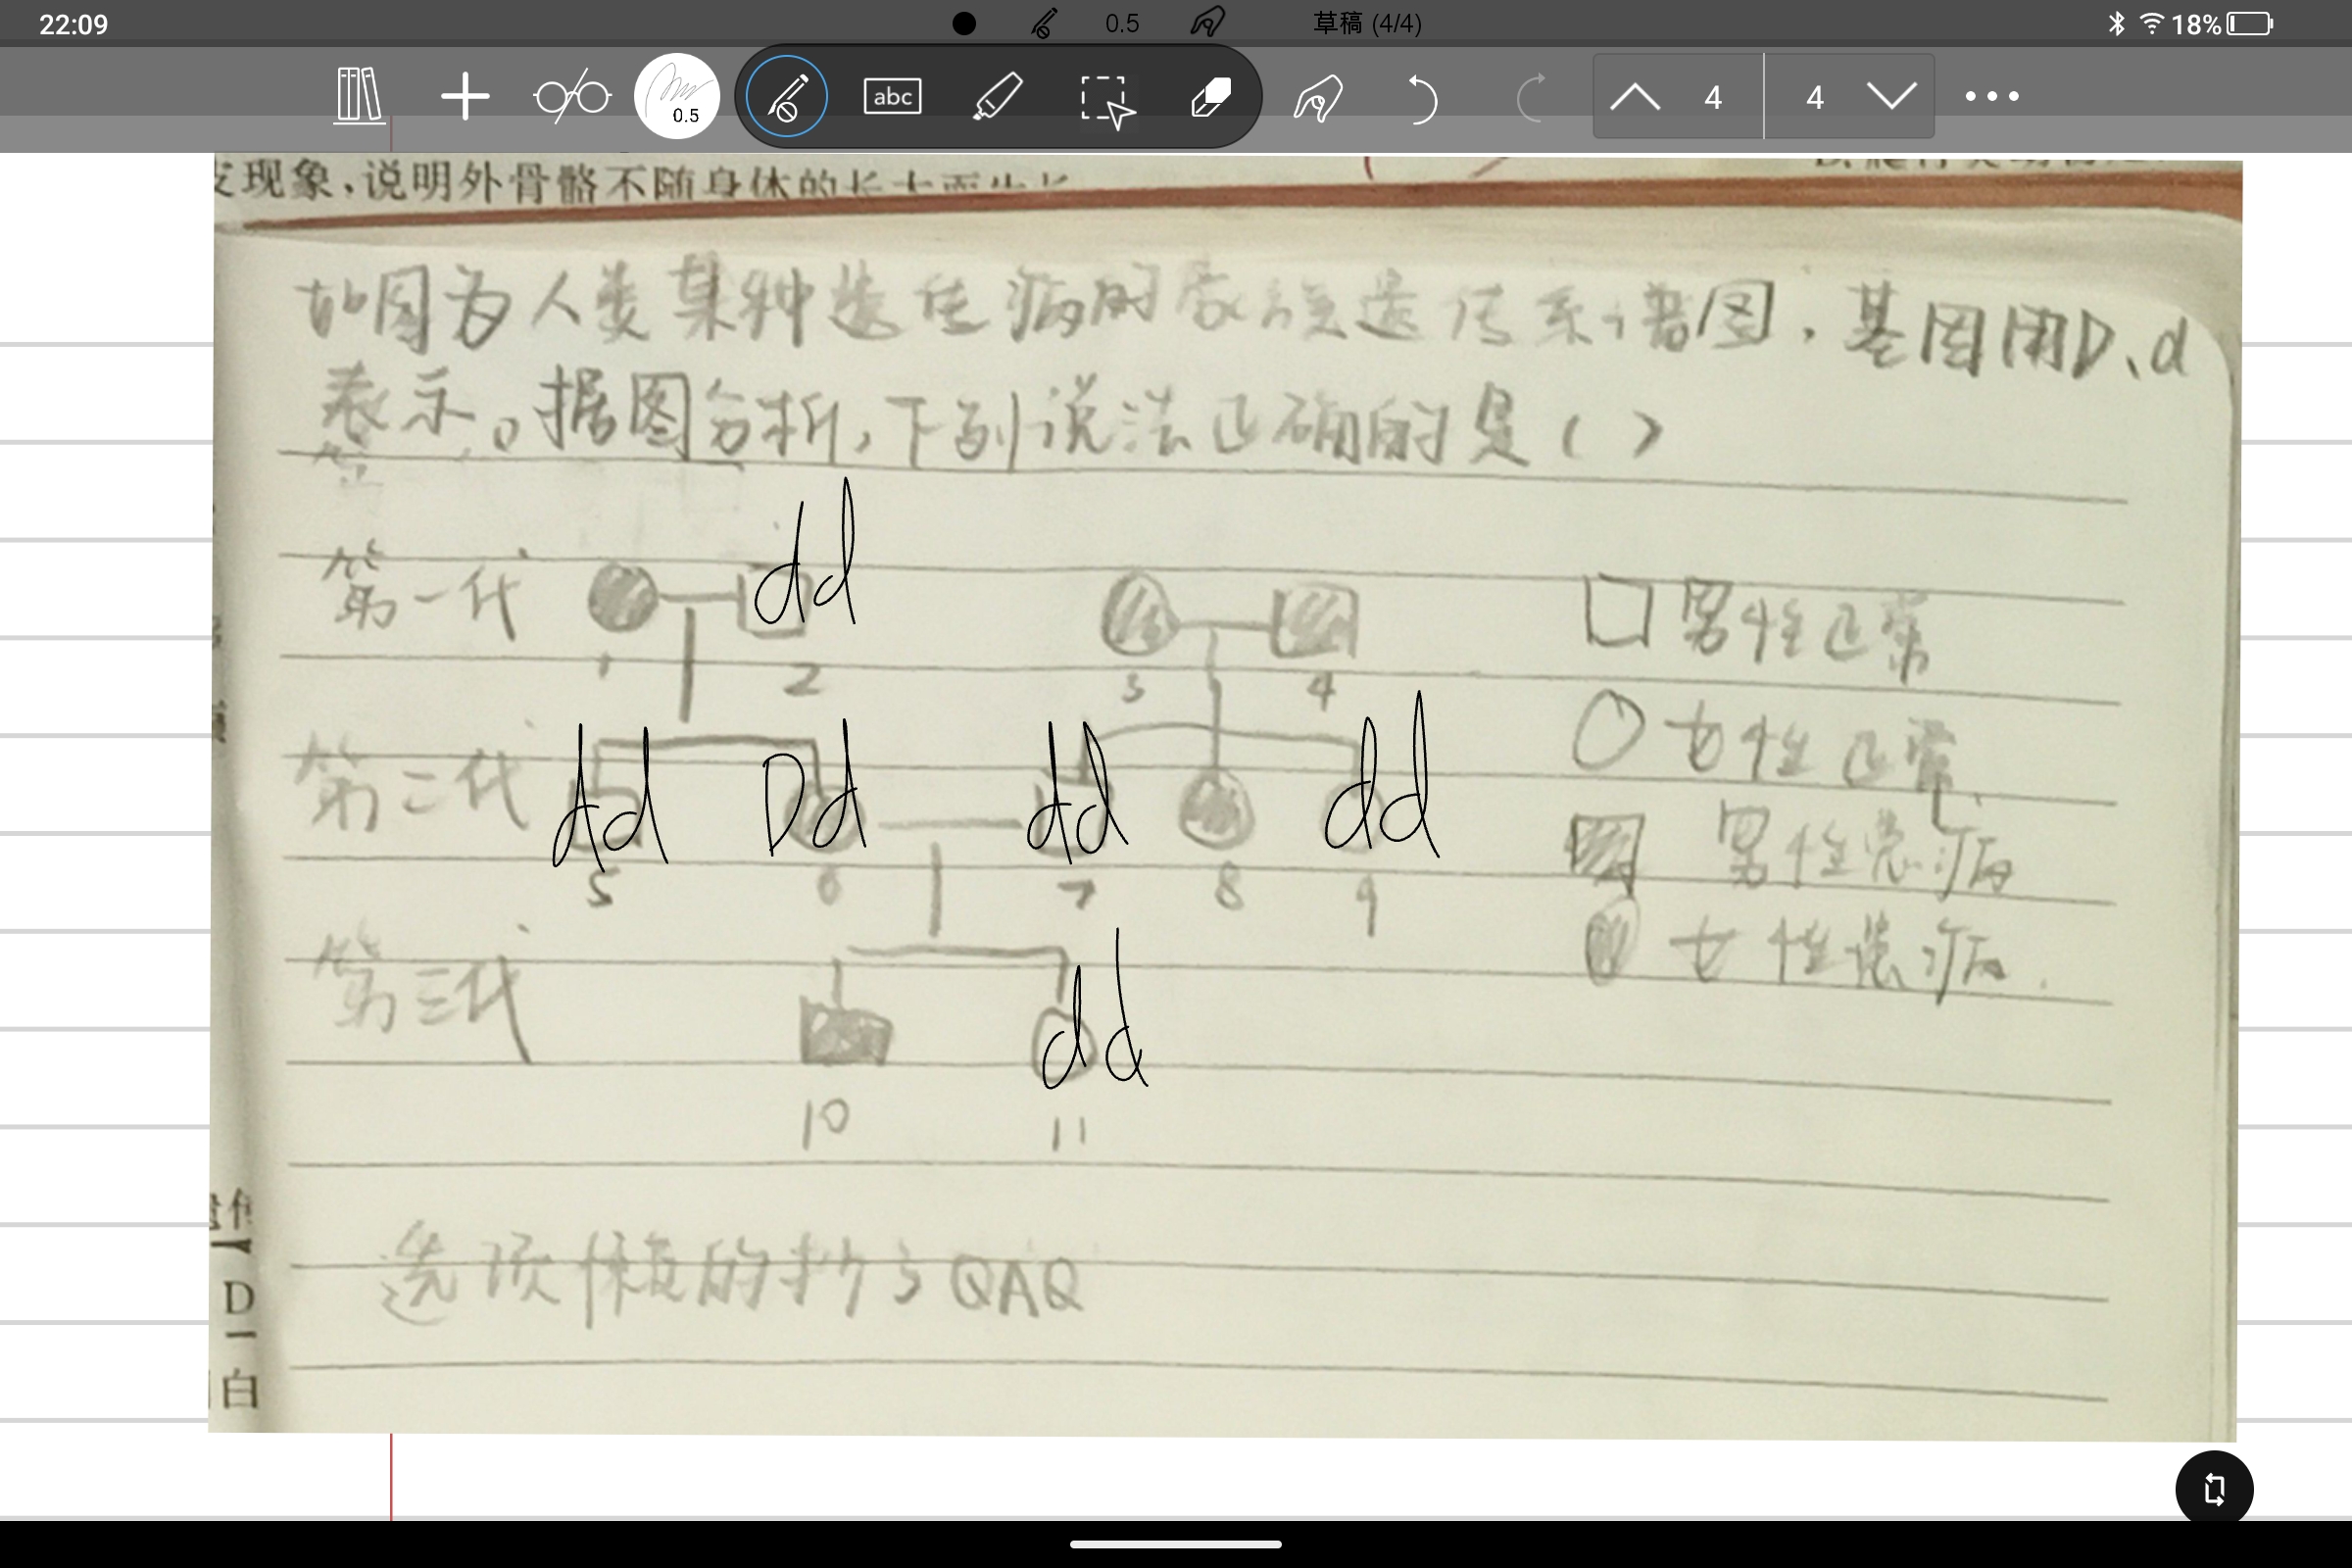 22:09
0.5
草稿 (4/4)
18%
0.5
abc
4
4
现象、说明外骨骼不随身体的长大而生长
如图为人类某种遗传病的家族遗传系谱图，基因用D、d
表示。据图分析，下列说法正确的是（ ）
dd
第一代
1
2
3
4
男性正常
女性正常
第二代
dd
Dd
dd
dd
5
6
7
8
9
男性患病
女性患病.
第三代
dd
10
11
选项懒的抄了QAQ
D
白